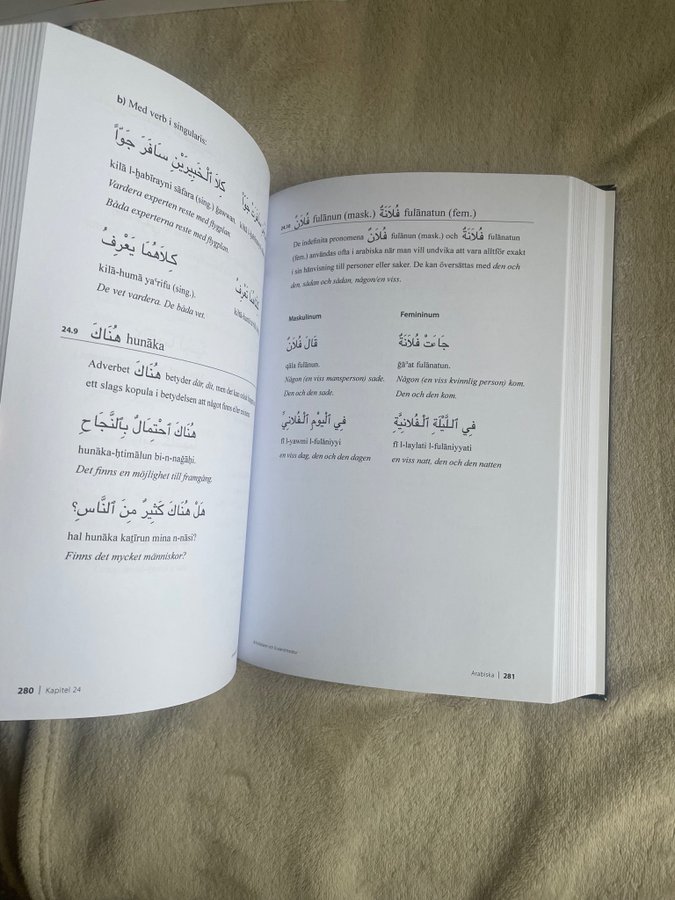 b) Med verb i singularis:
كِلَا ٱلْخَبِيرَيْنِ سَافَرَ جَوًّا
kilā l-ḫabīrayni sāfara (sing.) ğawwan.
Vardera experten reste med flygplan.
Båda experterna reste med flygplan.
كِلَاهُمَا يَعْرِفُ
kilā-humā yaʿrifu (sing.).
De vet vardera. De båda vet.
24.9 هُنَاكَ hunāka
Adverbet هُنَاكَ betyder där, dit, men det kan också
ett slags kopula i betydelsen att något finns eller
هُنَاكَ ٱحْتِمَالٌ بِٱلنَّجَاحِ
hunāka-ḥtimālun bi-n-nağāḥi.
Det finns en möjlighet till framgång.
هَلْ هُنَاكَ كَثِيرٌ مِنَ ٱلنَّاسِ؟
hal hunāka kaṯīrun mina n-nāsi?
Finns det mycket människor?
280 | Kapitel 24
24.10 فُلَانٌ fulānun (mask.) فُلَانَةٌ fulānatun (fem.)
De indefinita pronomena فُلَانٌ fulānun (mask.) och فُلَانَةٌ fulānatun
(fem.) används ofta i arabiska när man vill undvika att vara alltför exakt
i sin hänvisning till personer eller saker. De kan översättas med den och
den, sådan och sådan, någon/en viss.
Maskulinum Femininum
قَالَ فُلَانٌ جَاءَتْ فُلَانَةٌ
qāla fulānun. ğāʾat fulānatun.
Någon (en viss mansperson) sade. Någon (en viss kvinnlig person) kom.
Den och den sade. Den och den kom.
فِي ٱلْيَوْمِ ٱلْفُلَانِيِّ فِي ٱللَّيْلَةِ ٱلْفُلَانِيَّةِ
fī l-yawmi l-fulāniyyi fī l-laylati l-fulāniyyati
en viss dag, den och den dagen en viss natt, den och den natten
Arabiska | 281